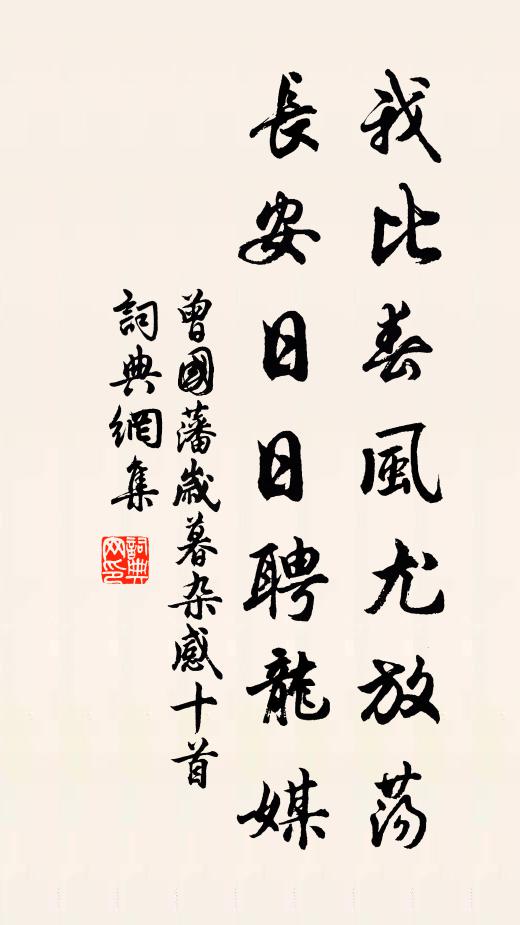 我比春風尤放荡
長安日日聘龍媒
曾國藩歲暮杂感十首
詞典網集
詞典网印